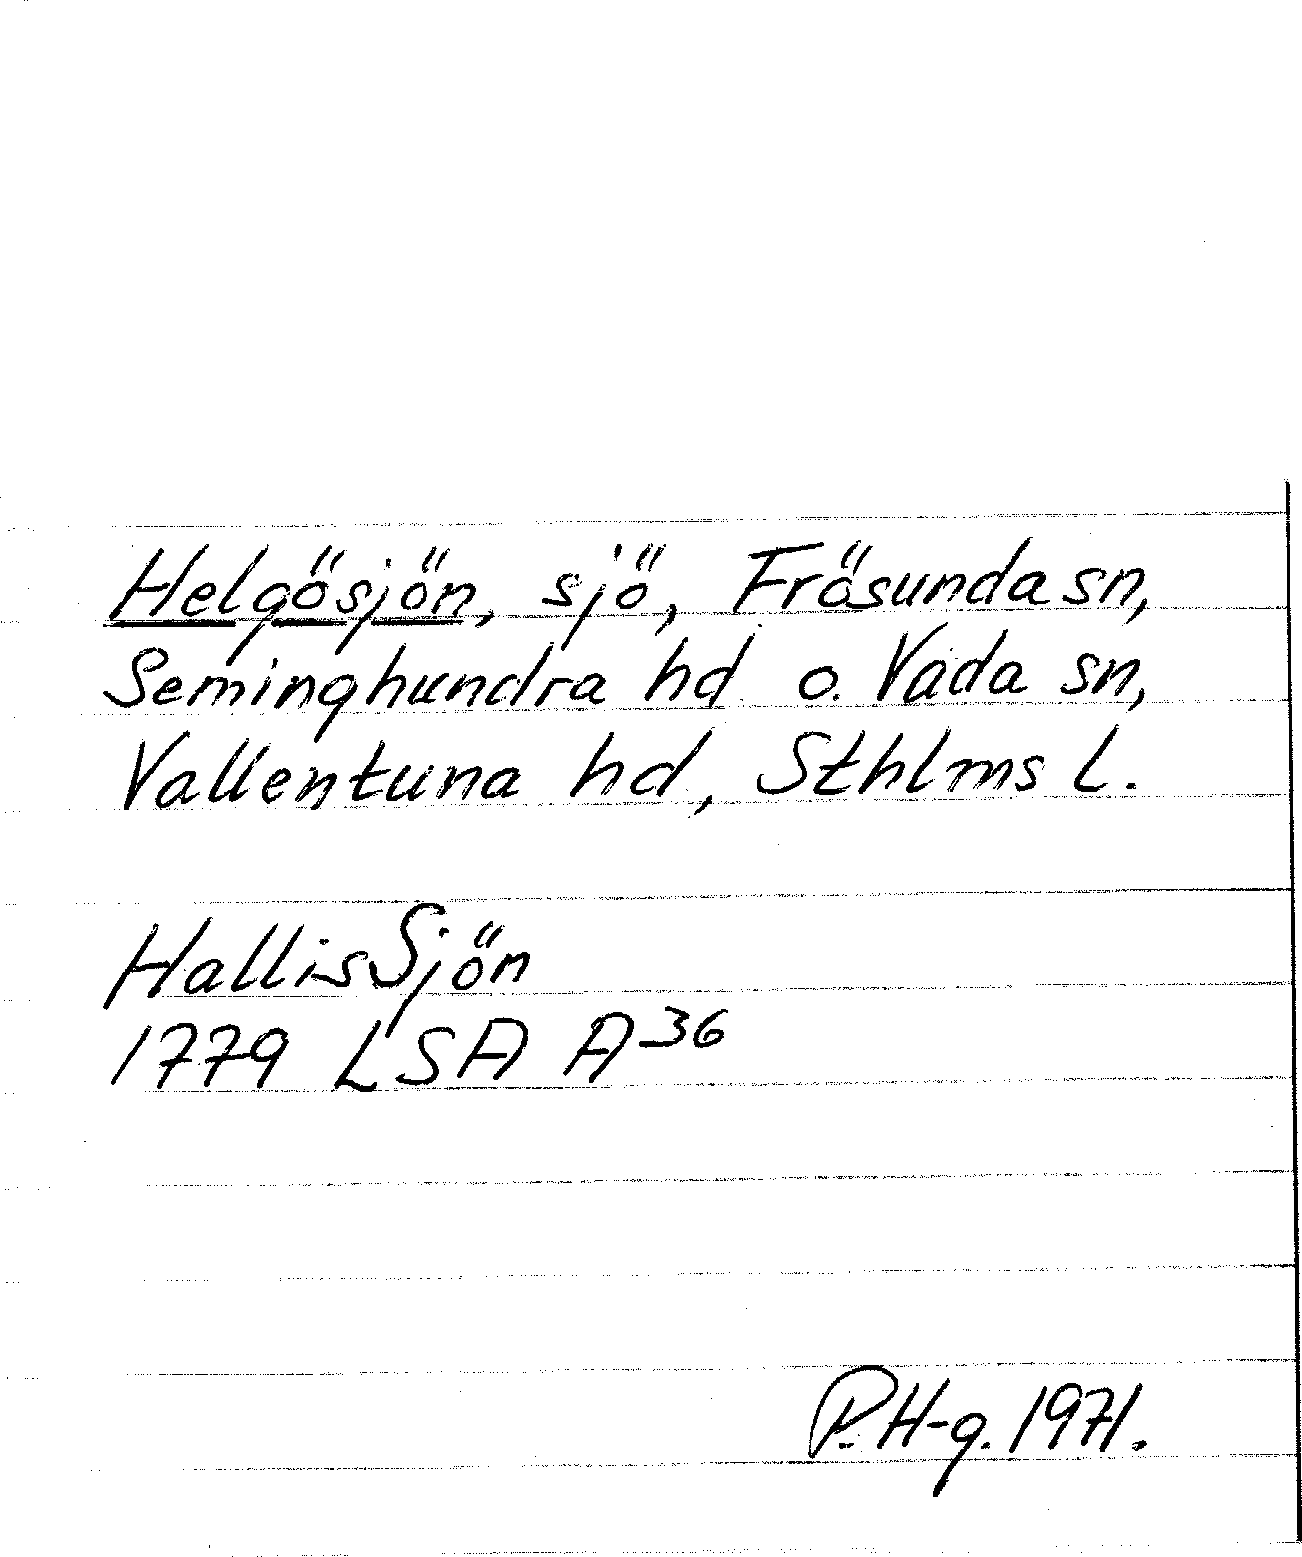 Helgösjön, sjö, Frösunda sn,
Seminghundra hd o. Vada sn,
Vallentuna hd, Sthlms l.
HallisSjön
1779 LSA A36
P. H-g. 1971.